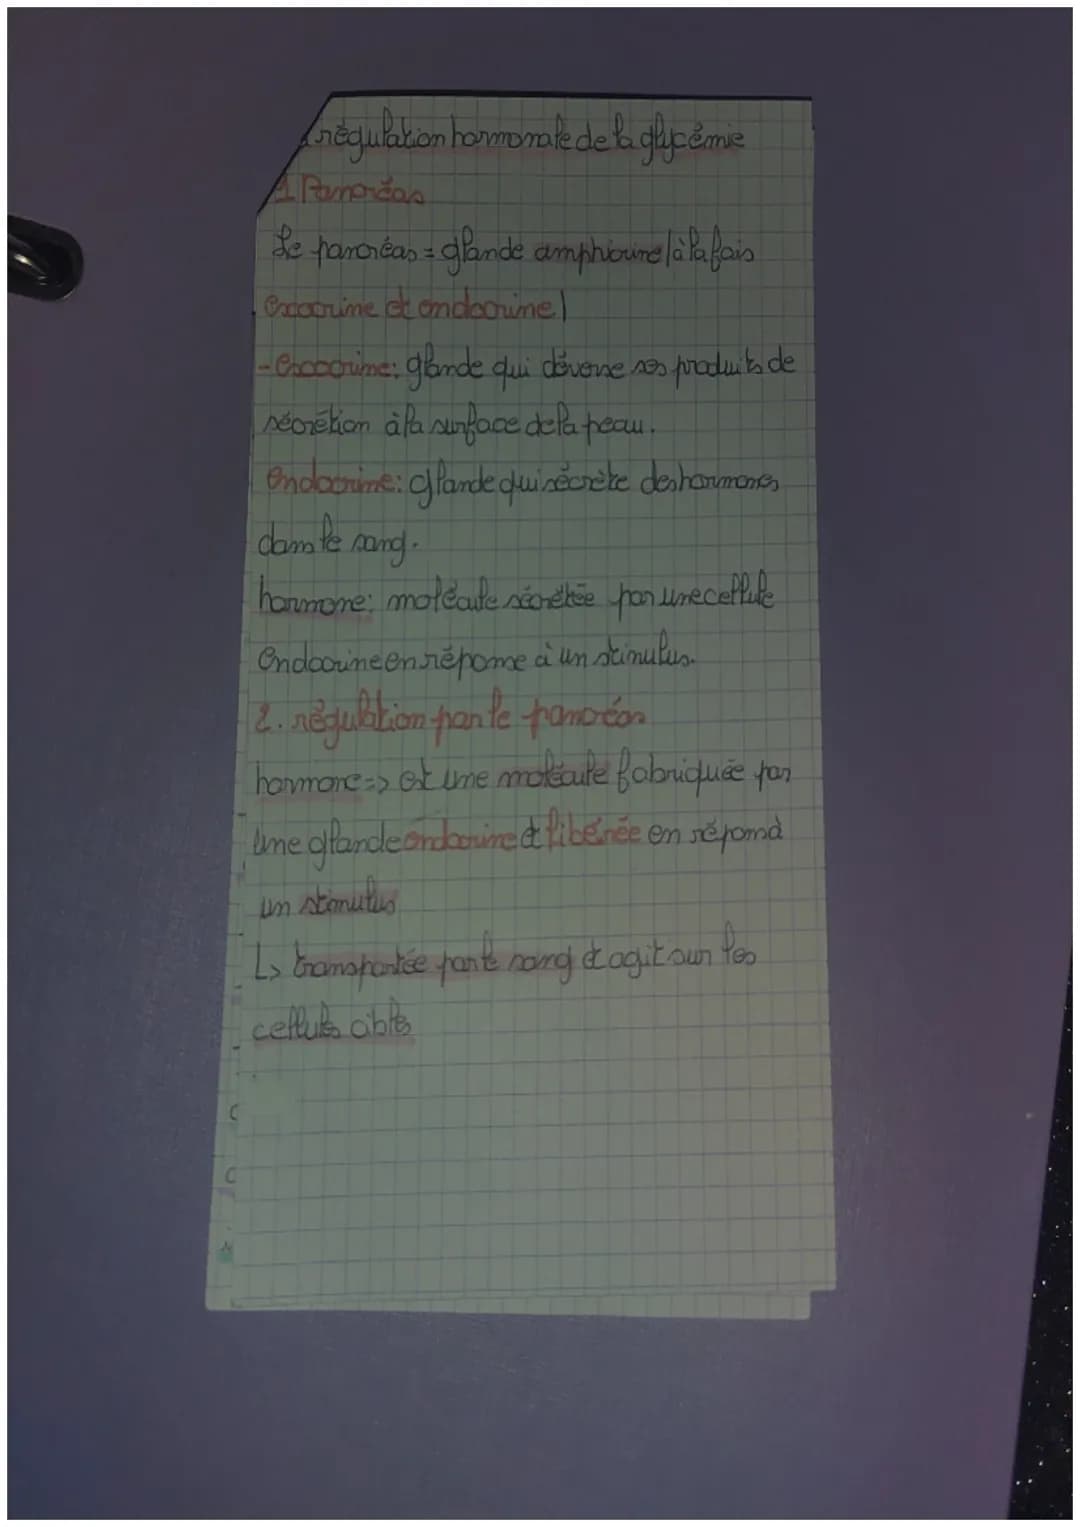 régulation hormonale de la glycémie
1 Pancréas
Le pancréas = glande amphicrine (à la fois
exocrine et endocrine)
- Exocrine: glande qui déverse ses produits de
sécrétion à la surface de la peau.
Endocrine: glande qui sécrète des hormones
dans le sang.
hormone: molécule sécrétée par une cellule
Endocrine en réponse à un stimulus.
2. régulation par le pancréas
hormone => est une molécule fabriquée par
une glande endocrine et libérée en répond à
un stimulus
↳ transportée par le sang et agit sur les
cellules cibles